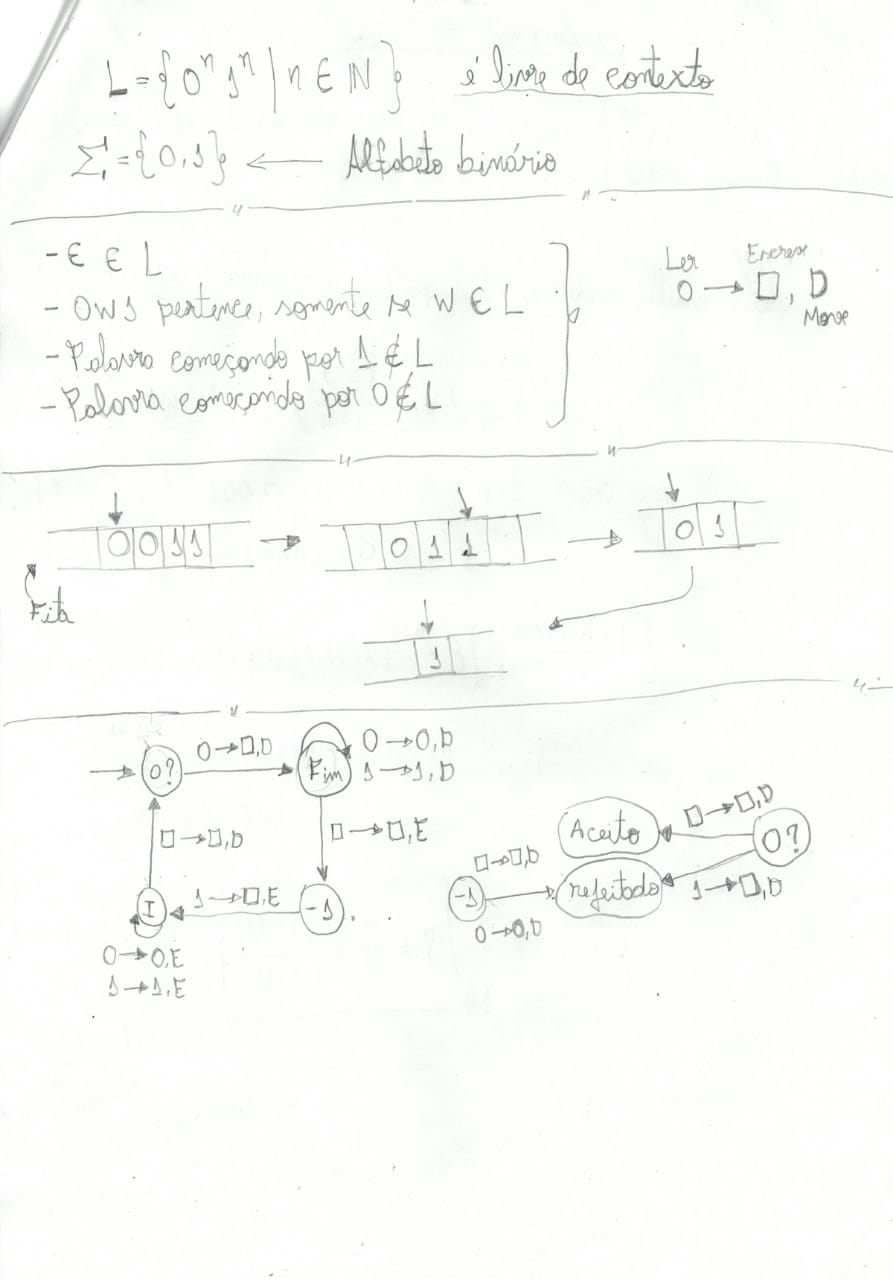 L = {0ⁿ 1ⁿ | n ∈ ℕ} é livre de contexto
Σ = {0,1} ← Alfabeto binário
- ε ∈ L
- 0w1 pertence, somente se w ∈ L
- Palavra começando por 1 ∉ L
- Palavra começando por 0 ∉ L
Ler Escreve
0 → □, D
Move
0 0 1 1 → 0 1 1 → 0 1
Fita
1
0? 0→□,D Fim 0→0,D
1→1,D
□→□,D
□→□,E
I 1→□,E -1
0→0,E
1→1,E
Aceito □→□,D 0?
-1 □→□,D rejeitado 1→□,D
0→0,D